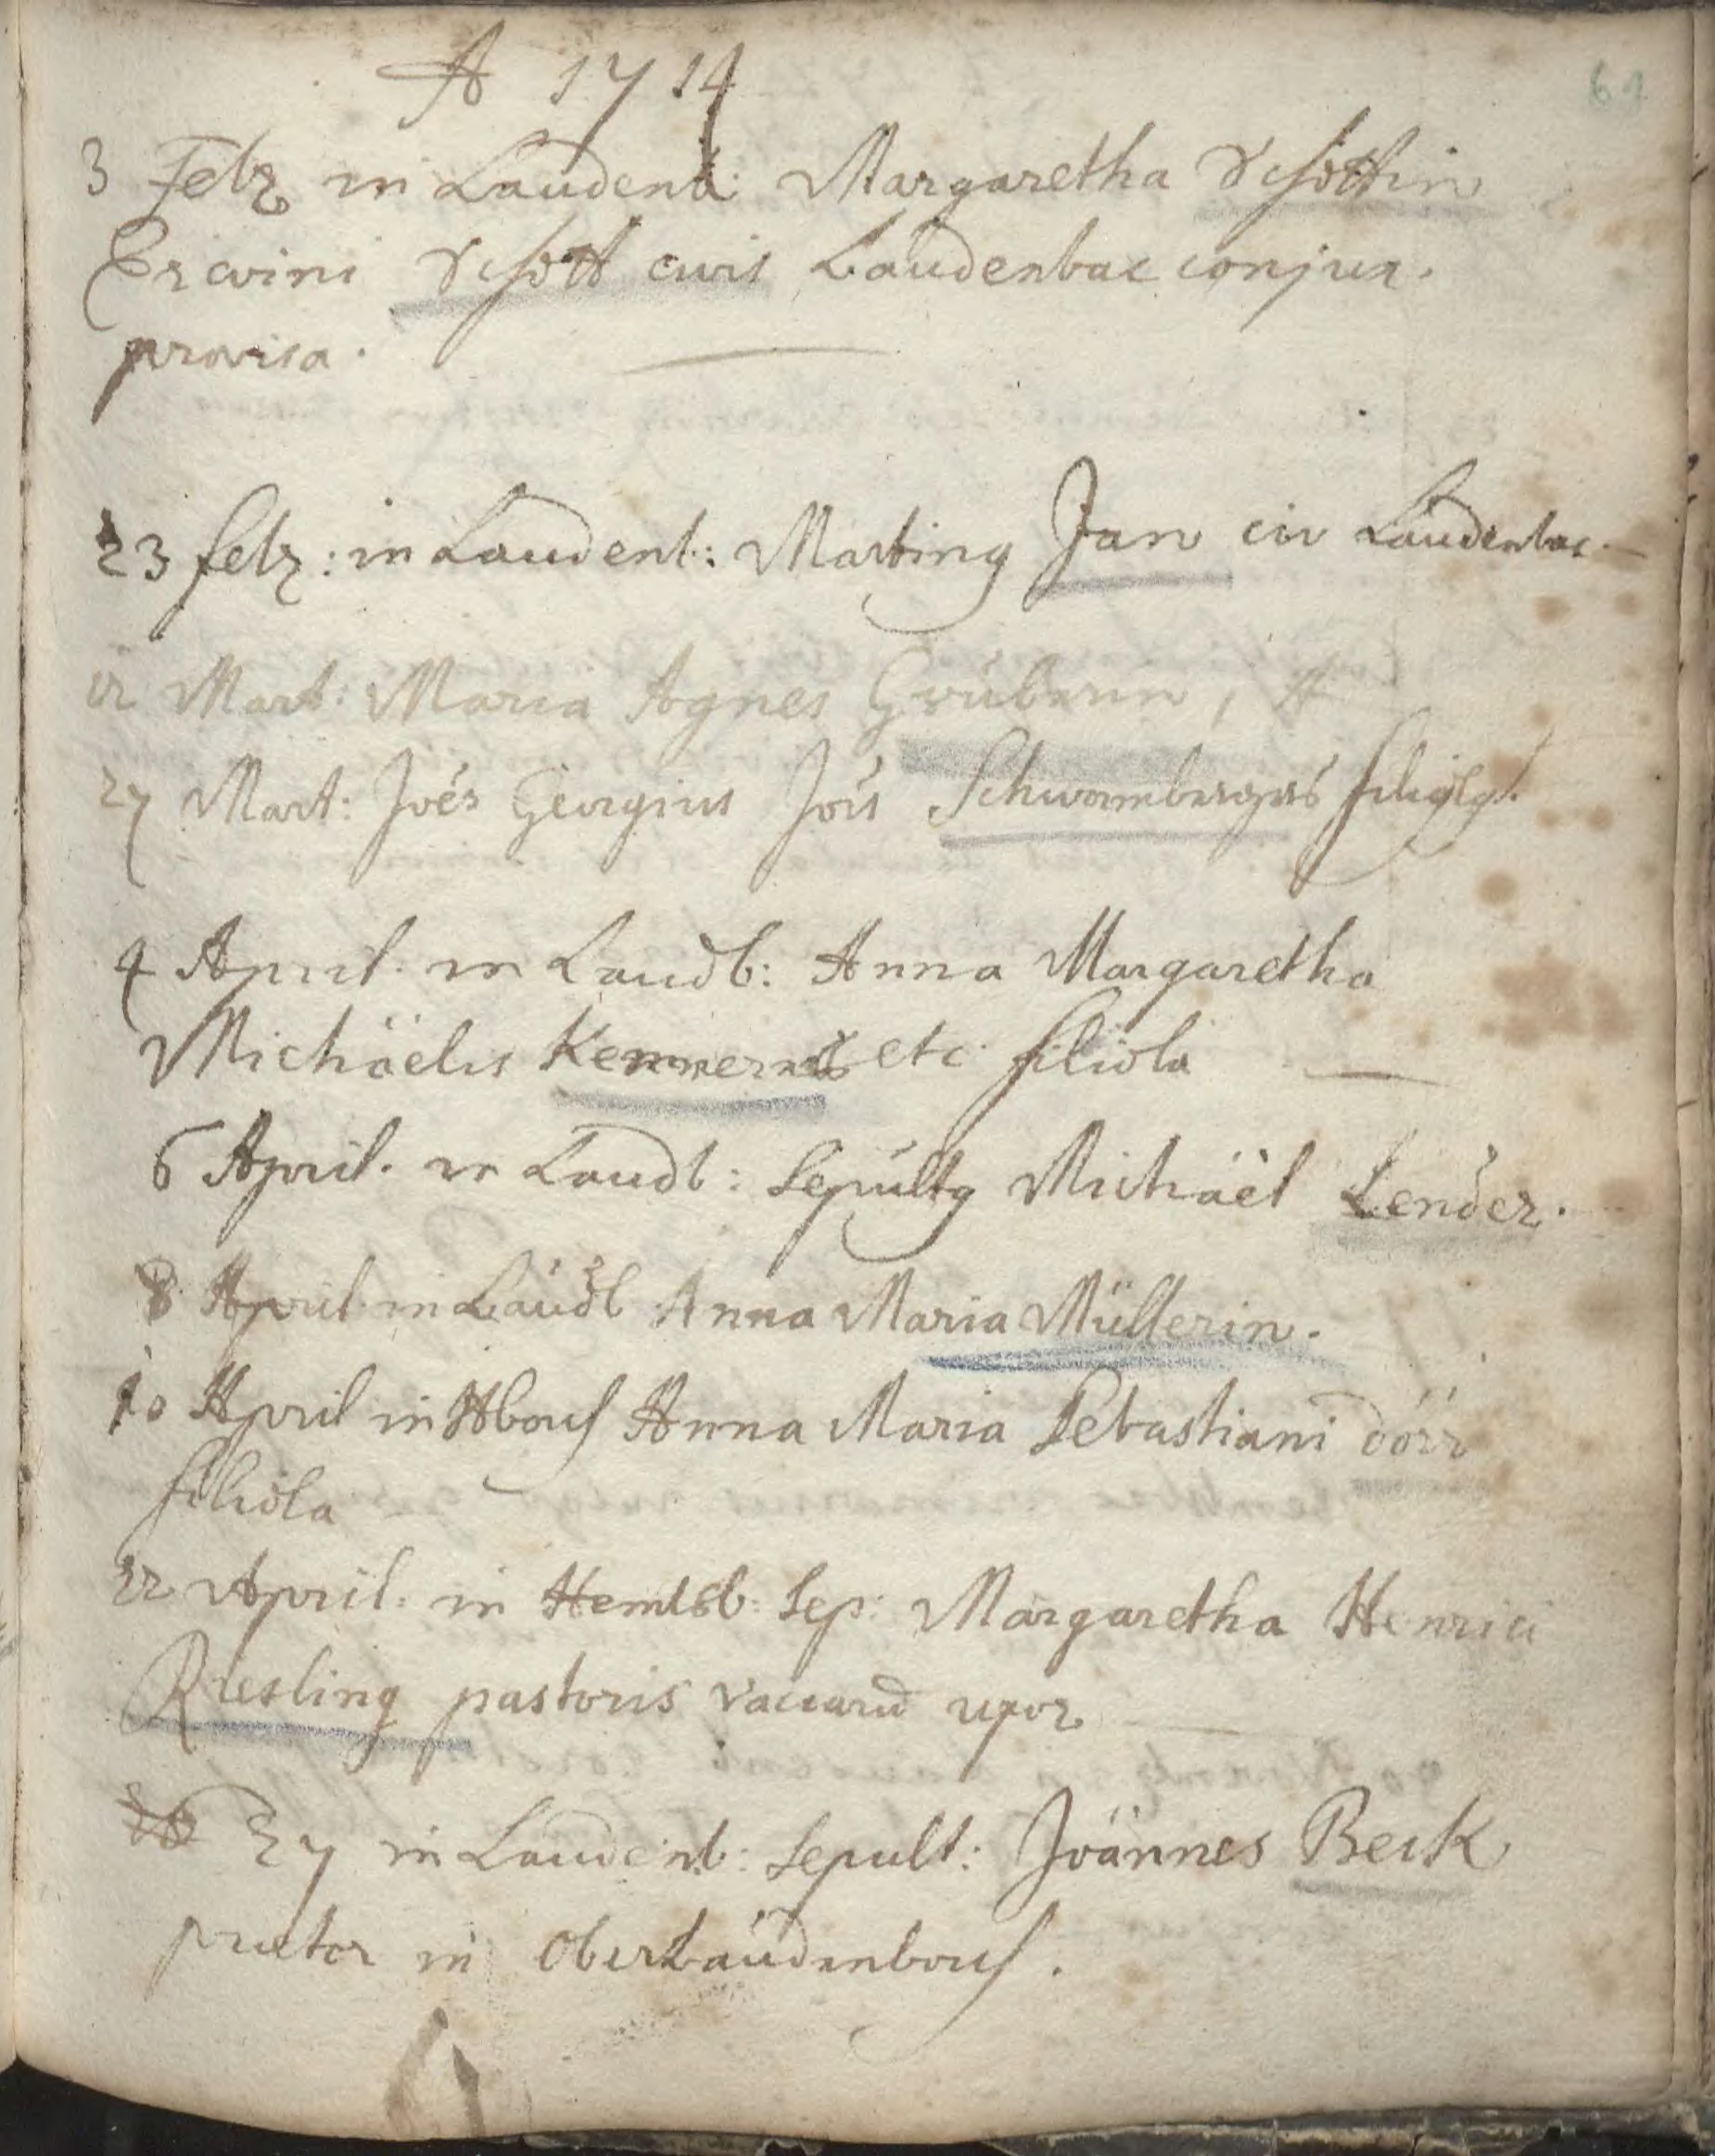 A 1714
61
3 Febr in Laudenb: Margaretha Schottin
Ervini Schott civis Laudenbac conjux.
provisa.
23 febr: in Laudenb: Marting Jan civ Laudenbac.
12 Mart: Maria Agnes Gruberin,
27 Mart: Joes Georgius Jois Schwambergers filiolg.
4 April. in Laudb: Anna Margaretha
Michäelis etc filiola
6 April. in Laudb: Sepultg Michäel Lender.
8 April in Laudb Anna Maria Müllerin.
10 April in Anna Maria Sebastiani dörr
filiola
22 April: in Hemlsb: Sep: Margaretha Henrici
Riesling pastoris vaccarum uxor
27 in Laudenb: Sepult: Joannes Beck
praetor in Oberlaudenbach.